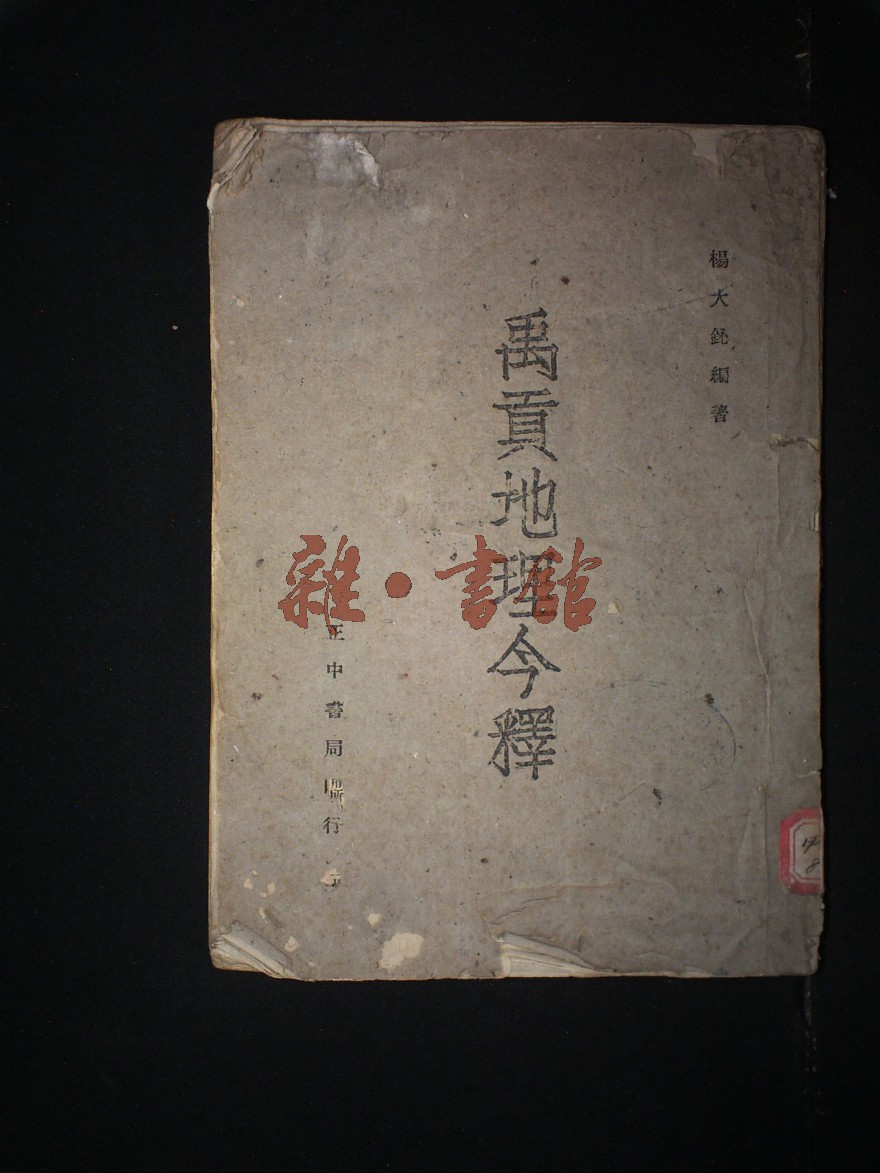 楊大鈊編著
禹貢地理今釋
正中書局印行
雜·書館